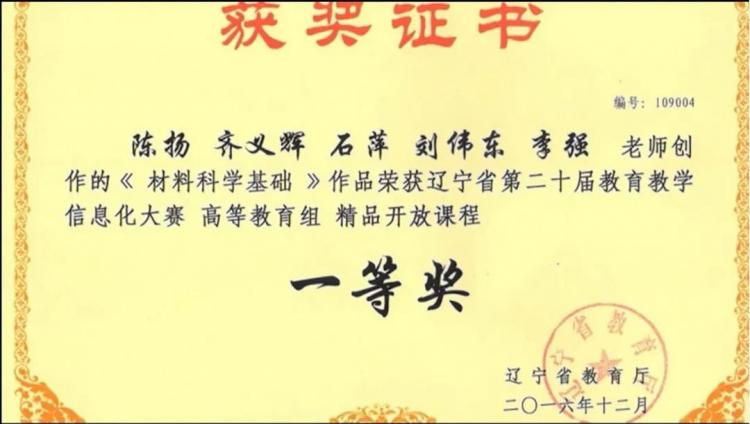 获奖证书
编号：109004
陈扬 齐义辉 石萍 刘伟东 李强 老师创
作的《 材料科学基础 》作品荣获辽宁省第二十届教育教学
信息化大赛 高等教育组 精品开放课程
一等奖
辽宁省教育厅
辽宁省教育厅
二〇一六年十二月